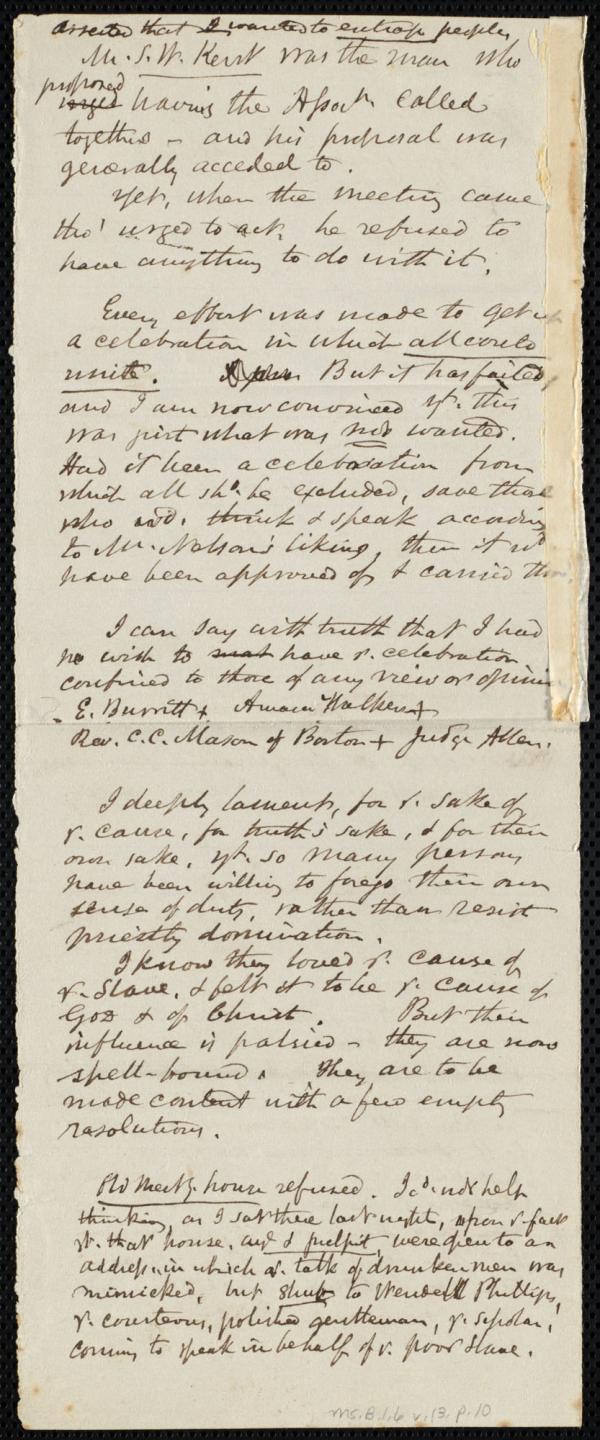 asserted that I wanted to entrap people,
Mr. S. W. Kent was the man who
proposed
urged having the Assocn called
together – and his proposal was
generally acceded to.
Yet, when the meeting came
tho' urged to act, he refused to
have anything to do with it.
Every effort was made to get up
a celebration in which all could
unite. But it has failed,
and I am now convinced yt. this
was just what was not wanted.
Had it been a celebration from
which all shd. be excluded, save those
who wd. think & speak according
to Mr. Nelson's liking, then it wd
have been approved of, & carried thro
I can say with truth that I had
no wish to have ye. celebration
confined to those of any view or opinion
E. Burritt + Amasa Walker +
Rev. C. C. Mason of Boston + Judge Allen.
I deeply lament, for ye. sake of
ye. cause, for truth's sake, & for their
own sake, yt. so many persons
have been willing to forego their own
sense of duty, rather than resist
priestly domination.
I know they loved ye. cause of
ye. Slave, & felt it to be ye. cause of
God & of Christ. But their
influence is palsied – they are now
spell-bound. They are to be
made content with a few empty
resolutions.
Old Meetg. house refused. I cd. not help
thinking, as I sat there last night, upon ye. fact
yt. that house, and & pulpit, were open to an
address in which ye. talk of drunken men was
mimicked, but shut to Wendell Phillips,
ye. courteous, polished gentleman, ye. scholar,
coming to speak in behalf of ye. poor Slave.
Ms. B.1.6 v.13, p.10